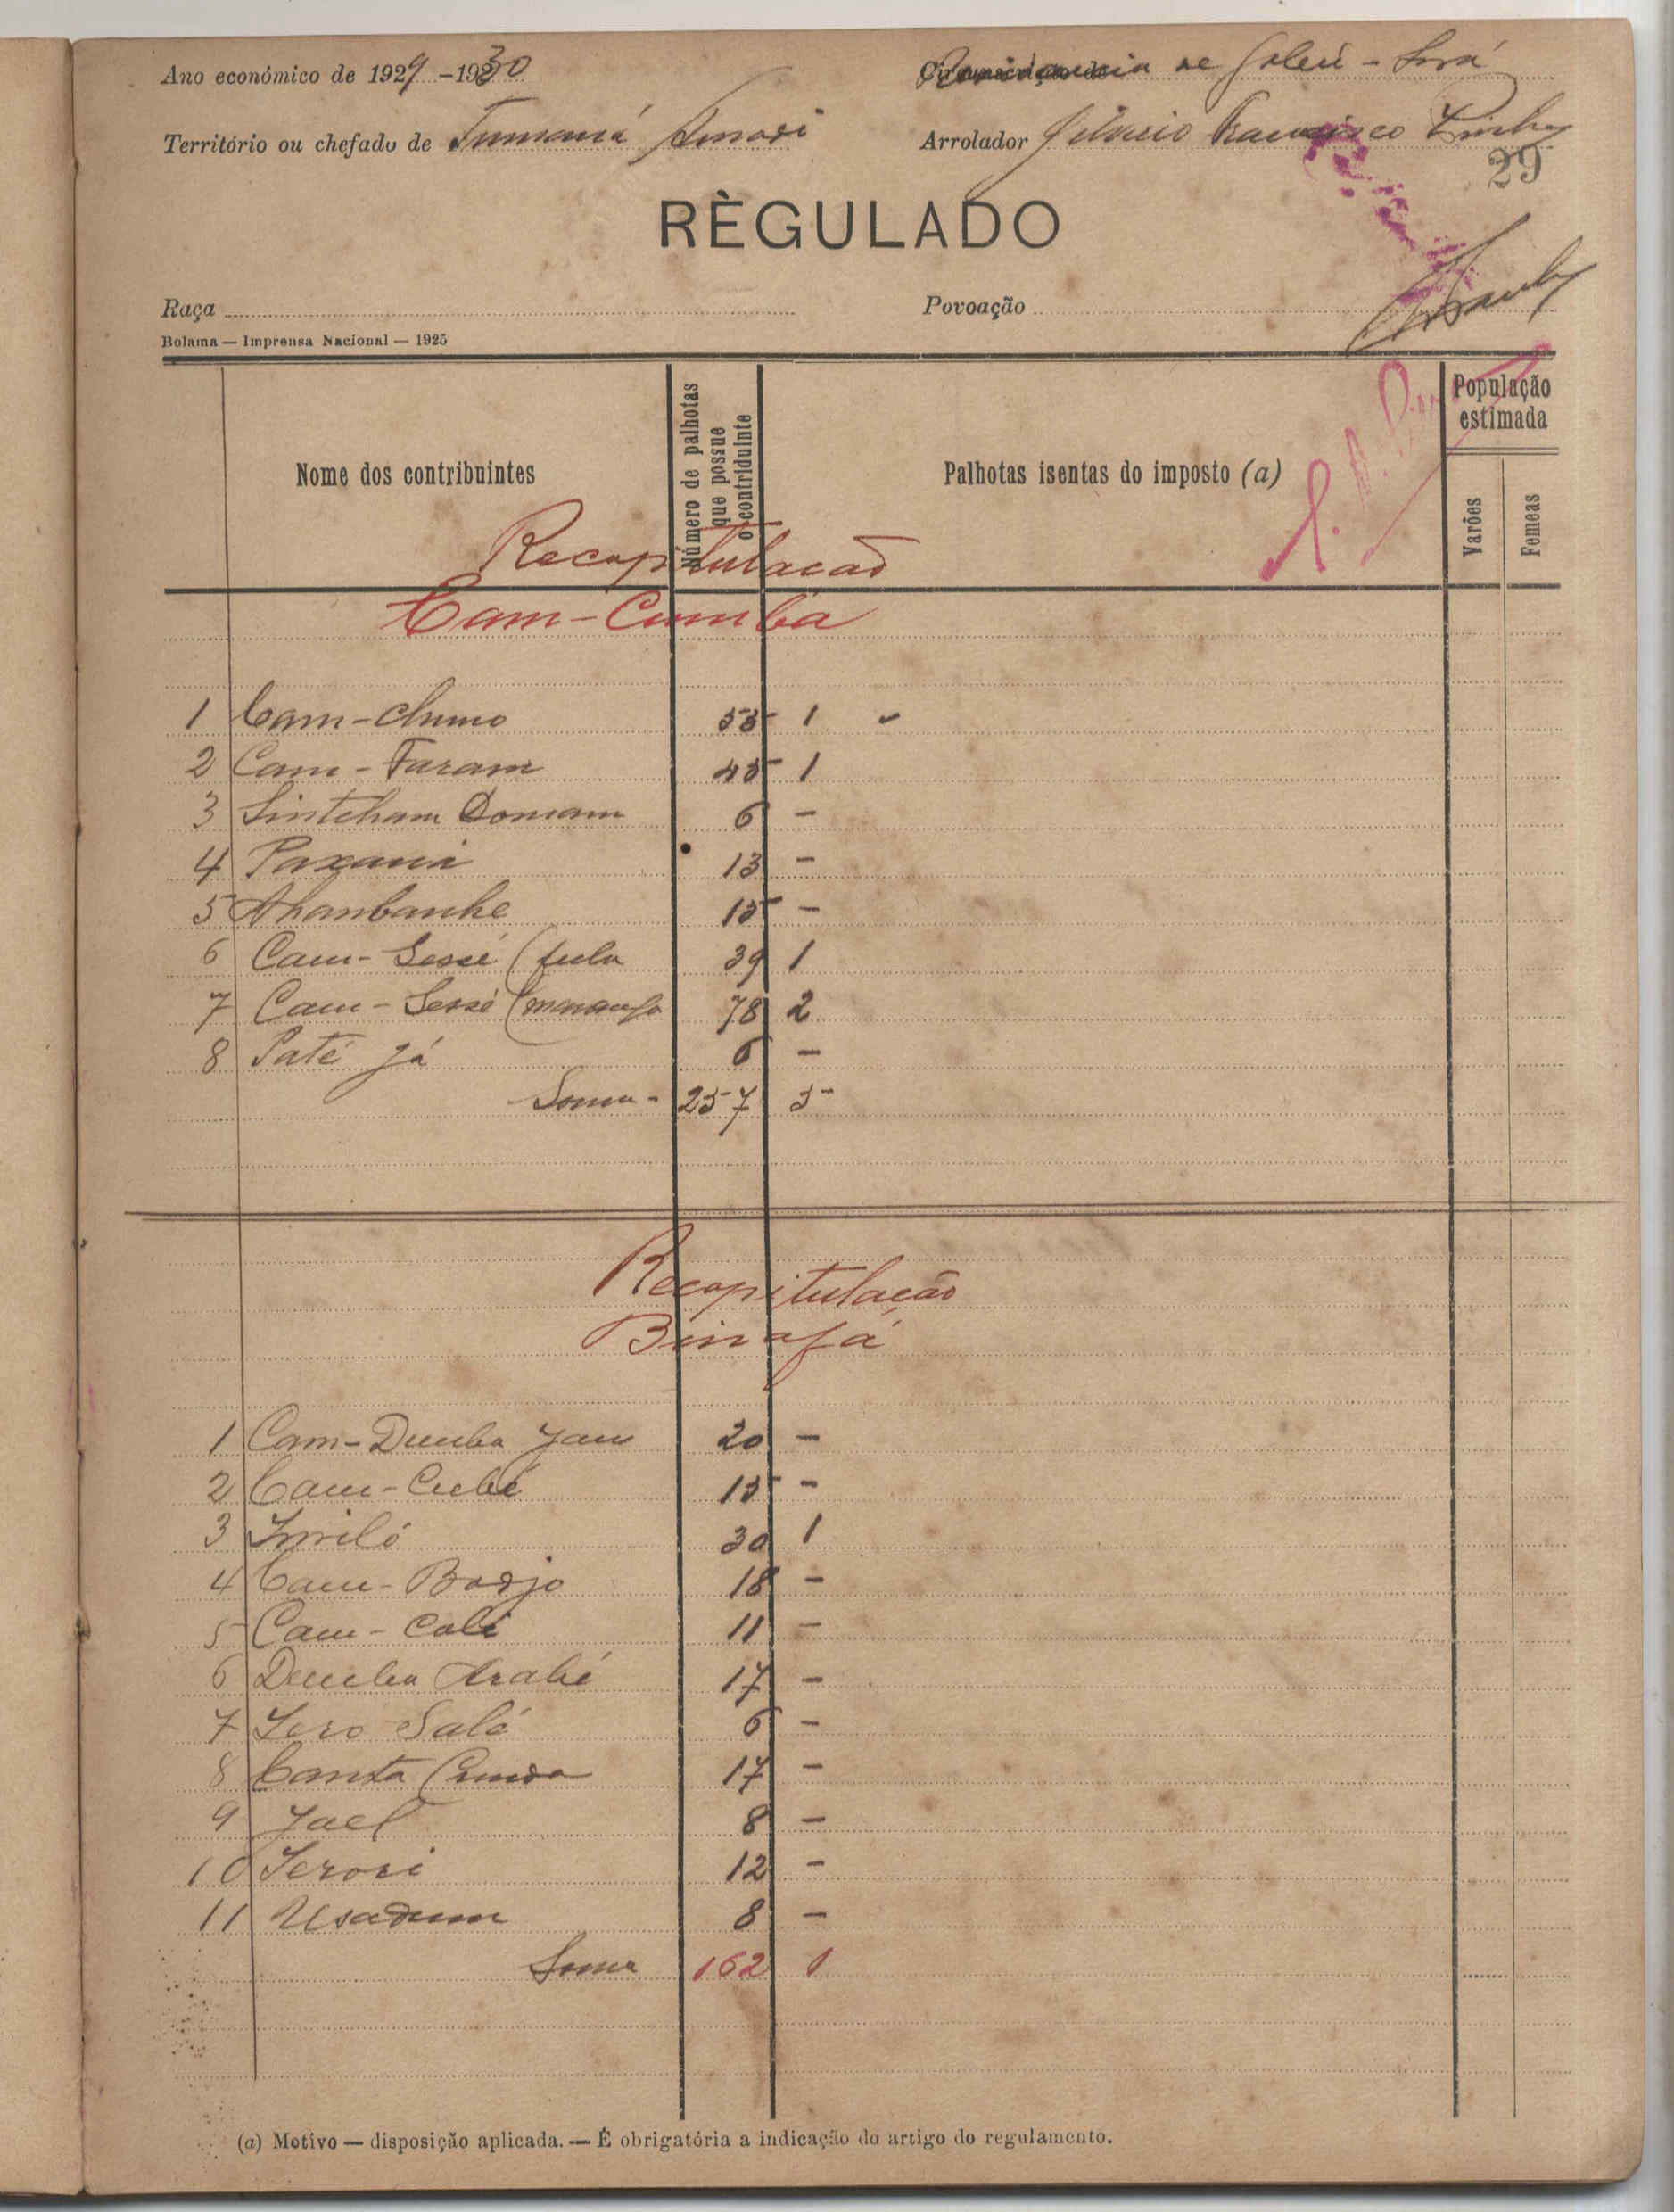 Ano económico de 1929-1930
Territorio ou chefado de Tumaná
Arrolador Francisco
29
RÈGULADO
Raça
Povoação
Bolama — Imprensa Nacional — 1925
Nome dos contribuintes
Número de palhotas que possue o contriduinte
Palhotas isentas do imposto (a)
População estimada
Varões
Femeas
Recapitulacão
Cam-Cumba
1 Cam-Chumo 55 1
2 Cam-Faram 45 1
3 Sintcham Comam 6 -
4 13 -
5 15 -
6 Cam-Sessé (fula 39 1
7 Cam-Sessé ( 78 2
8 Paté Já 6 -
Soma - 257 5
Recapitulação
Binafá
1 Cam-Dumba 20 -
2 Cam-Culé 15 -
3 30 1
4 Cam-Bodjo 18 -
5 Cam-Cali 11 -
6 Demba Arabé 17 -
7 Iero Saló 6 -
8 Canta Cunda 17 -
9 Jael 8 -
10 12 -
11 Usadum 8 -
Soma 162 1
(a) Motivo — disposição aplicada. — É obrigatória a indicação do artigo do regulamento.